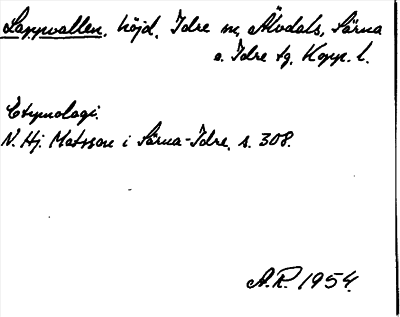 Lappvallen, höjd, Idre sn, Älvdals, Särna
o. Idre tg, Kopp. l.
Etymologi.
N. Hj. Matsson i Särna-Idre, s. 308.
A.R. 1954.